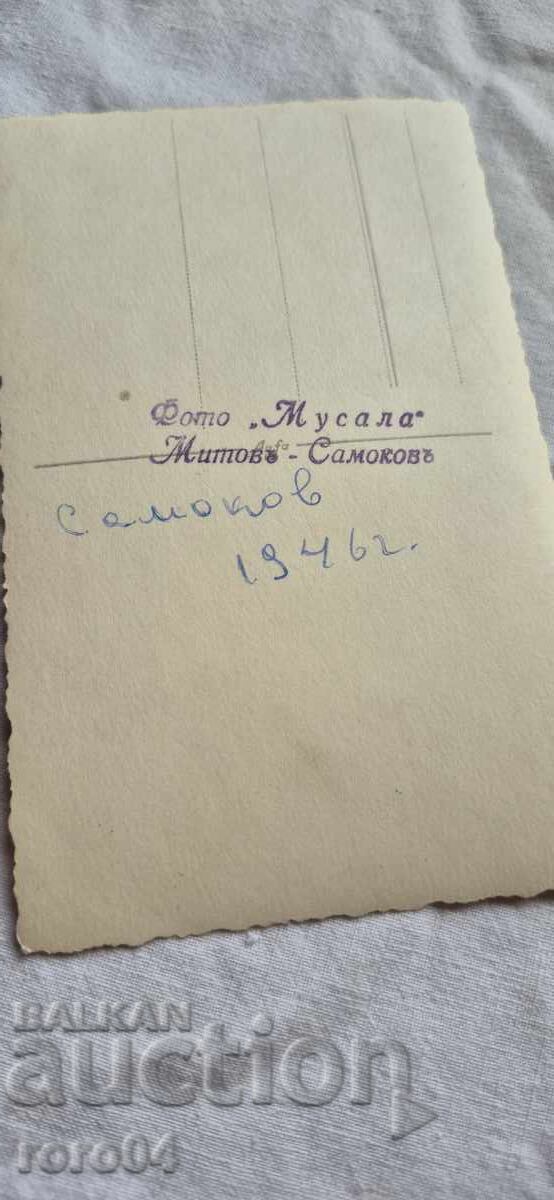 Фото „Мусала"
Митовъ - Самоковъ
Самоков
1946 г.
BALKAN
auction
roro04